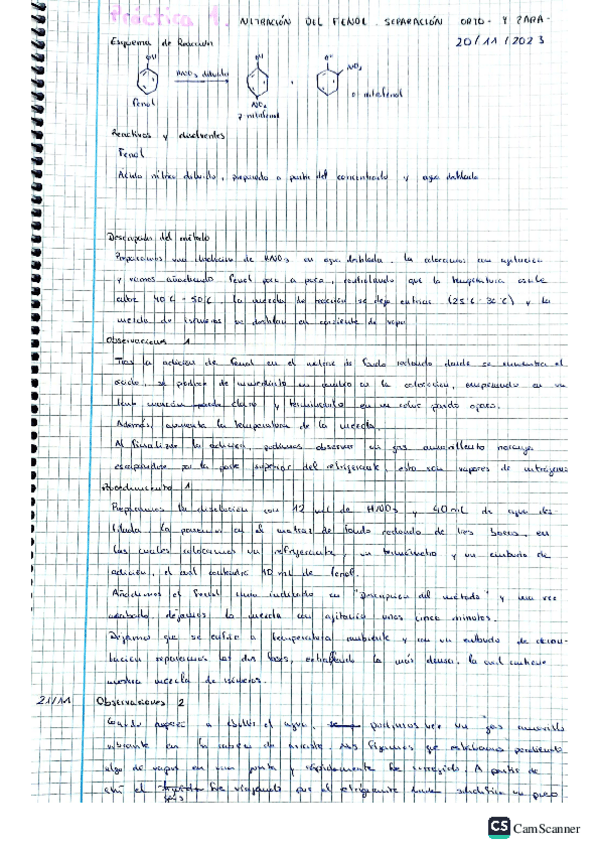 Práctica 1. NITRACIÓN DEL FENOL. SEPARACIÓN ORTO- Y PARA-
20/11/2023
Esquema de Reacción
OH OH OH
HNO3 diluido NO2
NO2
fenol p-nitrofenol o-nitrofenol
Reactivos y disolventes
Fenol
Ácido nítrico diluido, preparado a partir del concentrado y agua destilada
Descripción del método
Preparamos una disolución de HNO3 en agua destilada. La colocamos con agitación
y vamos añadiendo fenol poco a poco, controlando que la temperatura esté
entre 40°C - 50°C. La mezcla de reacción se deja enfriar (25°C - 30°C) y la
mezcla de isómeros se destilan en corriente de vapor
Observaciones 1
Tras la adición de fenol en el matraz de fondo redondo donde se encuentra el
ácido, se produce de inmediato un cambio en la coloración, empezando en un
tono marrón claro y terminando en un color pardo oscuro.
Además, aumenta la temperatura de la mezcla.
Al finalizar la adición, pudimos observar un gas amarillento naranja
escapándose por la parte superior del refrigerante, esto son vapores de nitrógeno
Procedimiento 1
Preparamos la disolución con 12 mL de HNO3 y 40 mL de agua des-
tilada. La ponemos en el matraz de fondo redondo de tres bocas, en
las cuales colocamos un refrigerante, un termómetro y un embudo de
adición, el cual contendrá 10 mL de fenol.
Añadimos el fenol como indicado en "Descripción del método" y una vez
acabado, dejamos la mezcla con agitación unos cinco minutos.
Dejamos que se enfríe a temperatura ambiente y con un embudo de decan-
tación separamos las dos fases, extrayendo la más densa, la cual contiene
nuestra mezcla de isómeros.
21/11 Observaciones 2
Cuando empezó a ebullir el agua, pudimos ver un gas amarillo
vibrante en la cabeza de arrastre. Nos fijamos que estábamos perdiendo
algo de vapor en una junta y rápidamente fue corregido. A partir de
ahí el gas fue viajando por el refrigerante hasta solidificar un poco
CS CamScanner